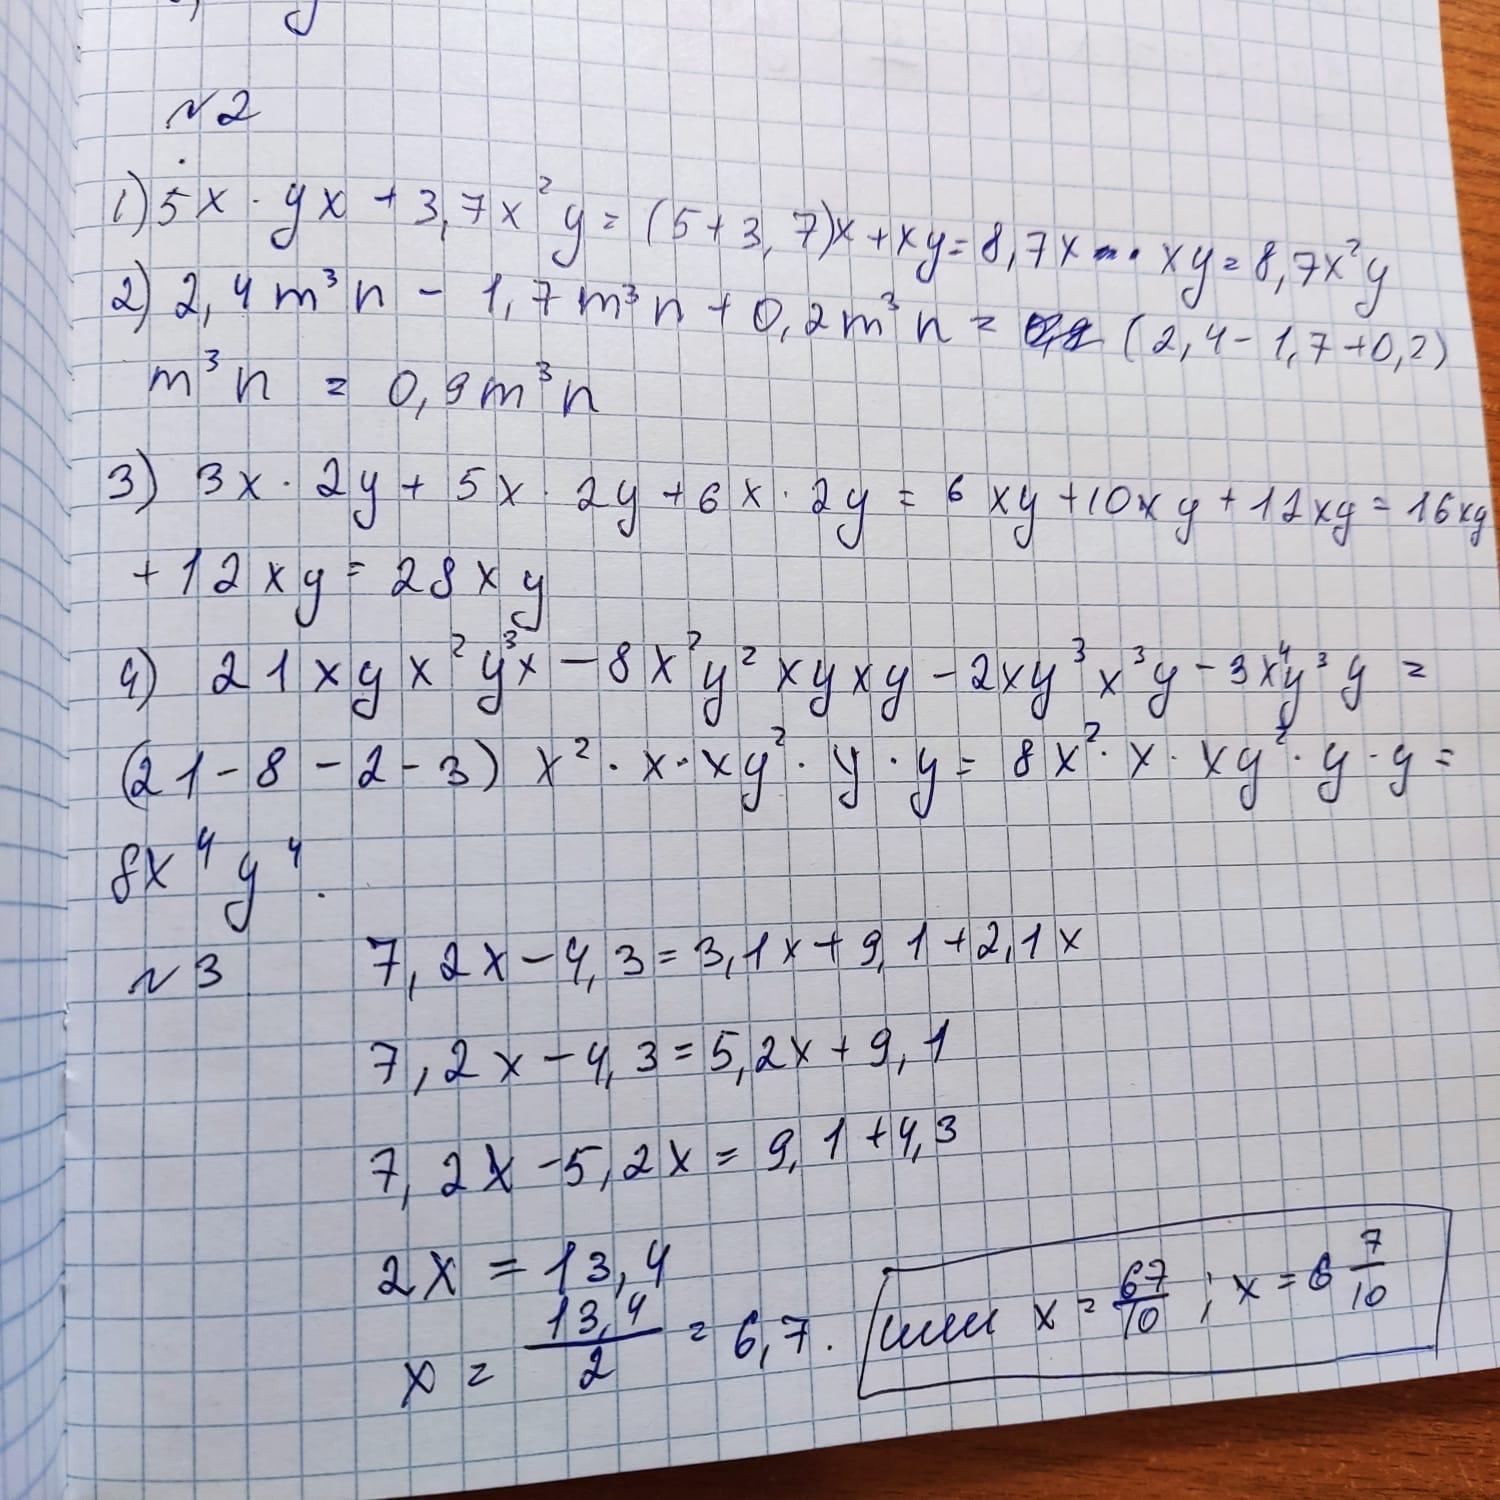 №2
1) 5x · yx + 3,7x²y = (5+3,7)x + xy = 8,7x · xy = 8,7x²y
2) 2,4m³n - 1,7m³n + 0,2m³n = (2,4 - 1,7 + 0,2)
m³n = 0,9m³n
3) 3x · 2y + 5x · 2y + 6x · 2y = 6xy + 10xy + 12xy = 16xy
+ 12xy = 28xy
4) 21xyx²y³x - 8x²y²xyxy - 2xy³x³y - 3x⁴y³y =
(21 - 8 - 2 - 3) x² · x · xy² · y · y = 8x² · x · xy² · y · y =
8x⁴y⁴.
№3 7,2x - 4,3 = 3,1x + 9,1 + 2,1x
7,2x - 4,3 = 5,2x + 9,1
7,2x - 5,2x = 9,1 + 4,3
2x = 13,4
x = 13,4/2 = 6,7. или x = 67/10; x = 6 7/10